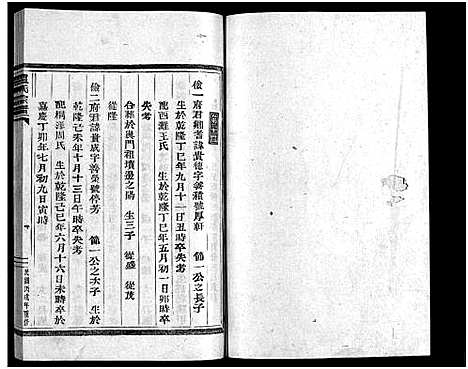 儉一府君鄉耆諱貴德字善積號厚軒　節一公之長子
生於乾隆丁巳年九月十一日丑時卒於
失考
配西灘王氏　生於乾隆丁巳年五月初一日卯時卒
失考
合葬於良門祖墳邊之陽　生三子　從盛　從茂
從隆
儉二府君諱貴成字善榮號停芳　節一公之次子　生於
乾隆己未年十月十三日午時卒失考
配桐洋周氏　生於乾隆己巳年六月十六日未時卒於
嘉慶丁卯年七月初九日寅時